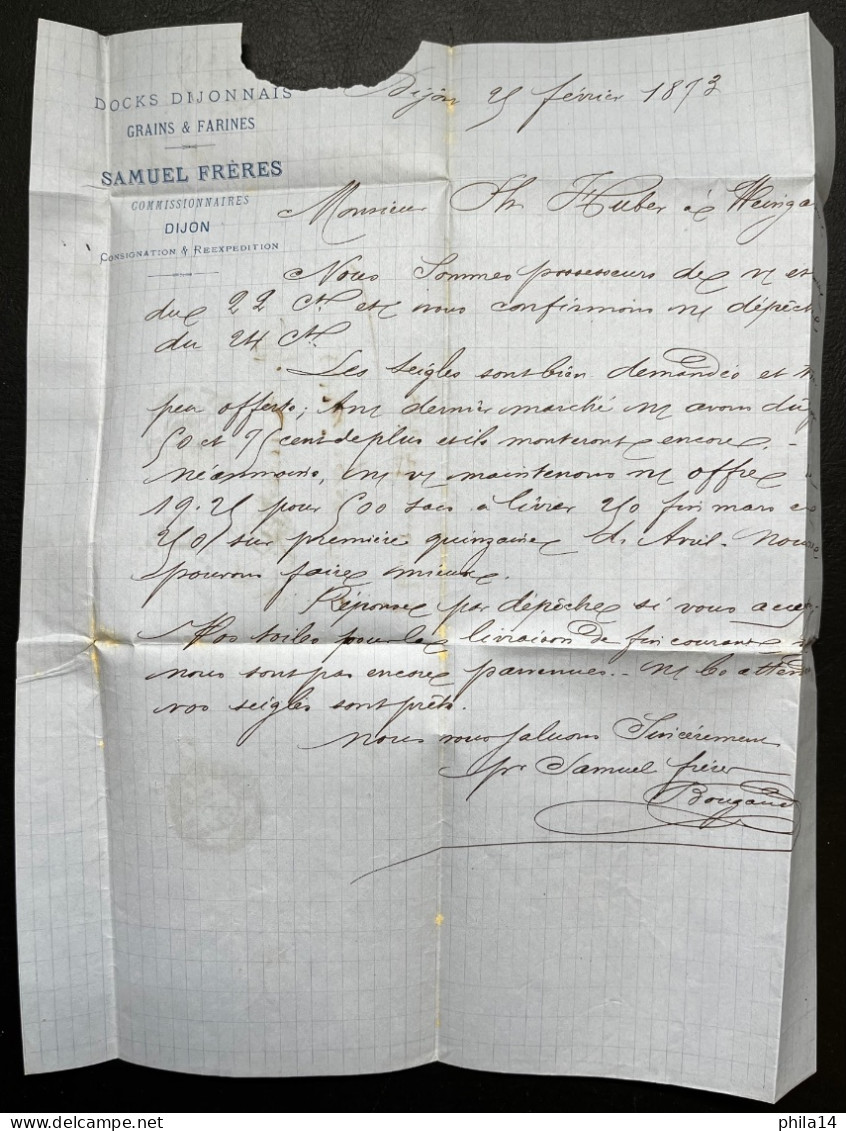 DOCKS DIJONNAIS
GRAINS & FARINES
SAMUEL FRÈRES
COMMISSIONNAIRES
DIJON
CONSIGNATION & REEXPEDITION
Dijon 25 février 1873
Monsieur Ph Huber à Weinga
Nous sommes possesseurs de v/ et
du 22 Ct et nous confirmons n/ dépêch
du 24 Ct
Les seigles sont bien demandés et
peu offerts; Au dernier marché n/ avons dû
50 et 75 cent de plus et ils monteront encore. -
Néanmoins, n/ v/ maintenons n/ offre
19.25 pour 500 sacs à livrer 250 fin mars
250 sur première quinzaine d'Avril. Nous
pouvons faire mieux.
Réponse par dépêche si vous
Vos toiles pour la livraison de fin courant
nous sont pas encore parvenues. - n/ les
vos seigles sont prêts.
Nous vous saluons Sincèrement
pr Samuel frères
Bougaud
philamax14